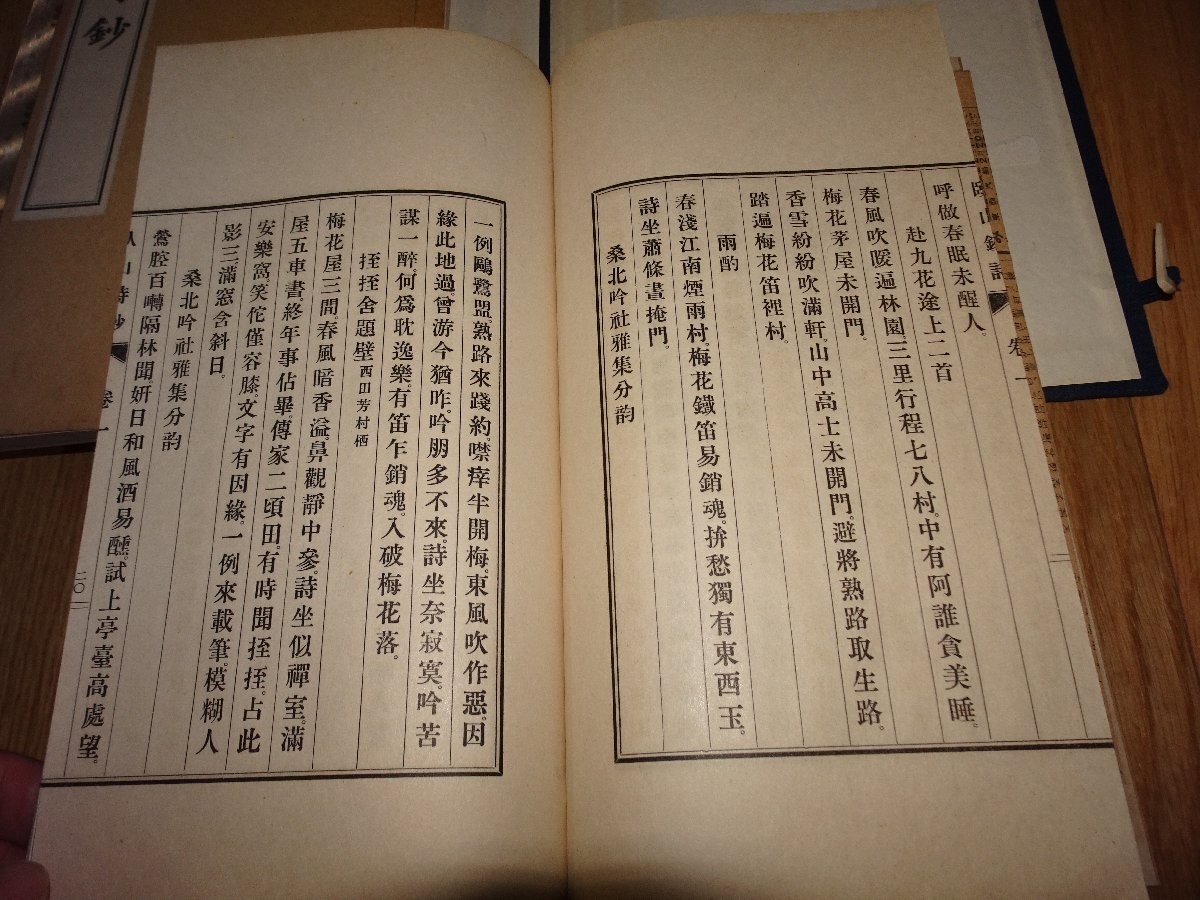 呼做春眠未醒人。
赴九花途上二首
春風吹暖遍林園。三里行程七八村。中有阿誰貪美睡。
梅花茅屋未開門。
香雪紛紛吹滿軒。山中高士未開門。避將熟路取生路。
踏遍梅花笛裡村。
雨酌
春淺江南煙雨村。梅花鐵笛易銷魂。拚愁獨有東西玉。
詩坐蕭條晝掩門。
桑北吟社雅集分韵
一例鷗鷺盟。熟路來踐約。噤瘁半開梅。東風吹作惡。因
緣此地過。曾游今猶昨。吟朋多不來。詩坐奈寂寞。吟苦
謀一醉。何爲耽逸樂。有笛乍銷魂。入破梅花落。
挃挃舍題壁 西田芳村栖
梅花屋三間。春風暗香溢。鼻觀靜中參。詩坐似禪室。滿
屋五車書。終年事佔畢。傳家二頃田。有時聞挃挃。占此
安樂窩。笑佗僅容膝。文字有因緣。一例來載筆。模糊人
影三。滿窓含斜日。
桑北吟社雅集分韵
鶯腔百囀隔林聞。妍日和風酒易醺。試上亭臺高處望。
山詩鈔
卷一
二〇
卷一
鈔